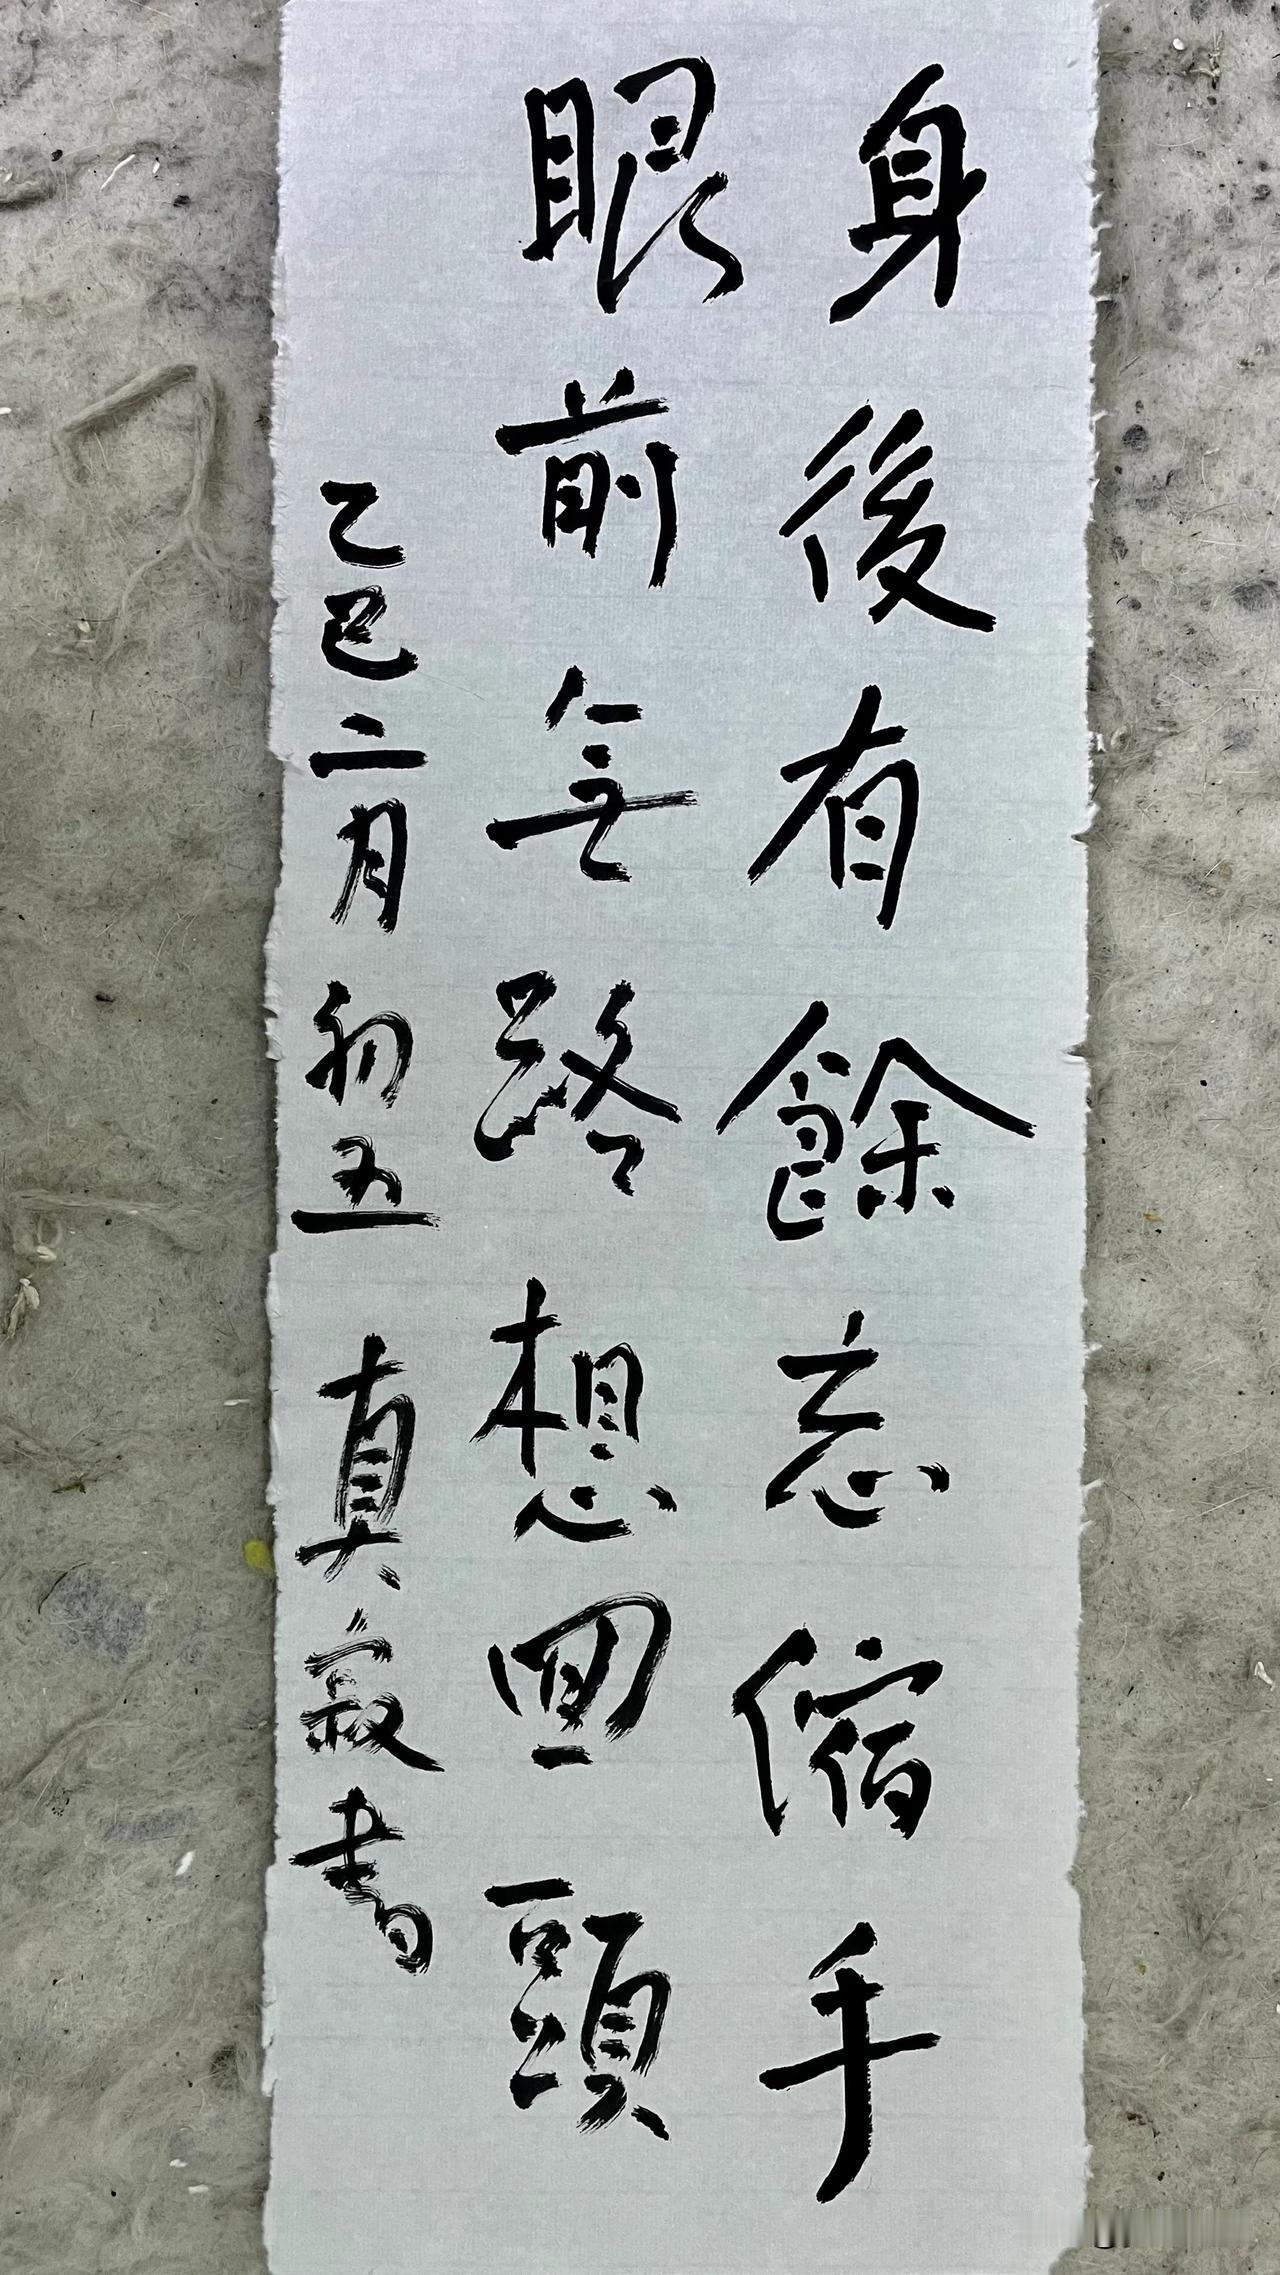 身後有餘忘縮手
眼前無路想回頭
乙巳二月初五 真寂書